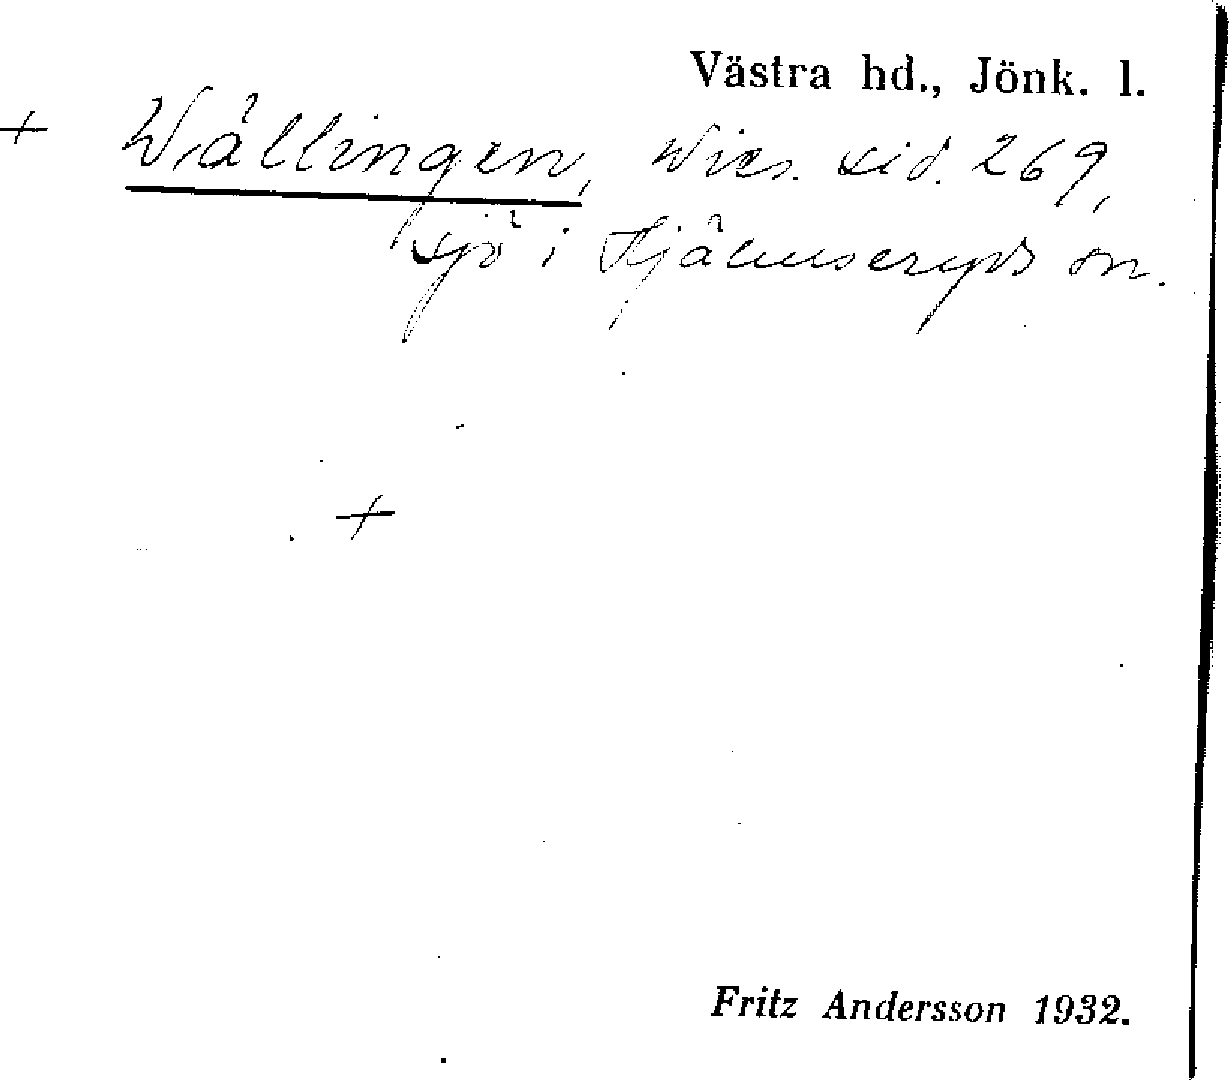 Västra hd., Jönk. l.
+ Wällingen, Wies. sid. 269,
sjö i Hjälmseryds sn.
+
Fritz Andersson 1932.